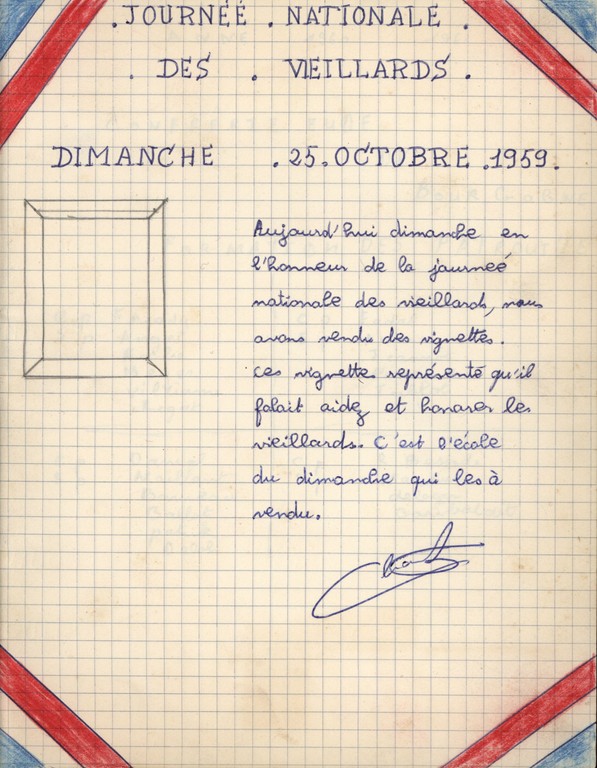 . JOURNÉÉ . NATIONALE .
. DES . VIEILLARDS .
DIMANCHE . 25. OCTOBRE . 1959 .
Aujourd'hui dimanche en
l'honneur de la journeé
nationale des vieillards, nous
avons vendu des vignettes.
ces vignettes représenté qu'il
falait aidez et honorer les
vieillards. C'est l'école
du dimanche qui les à
vendu.